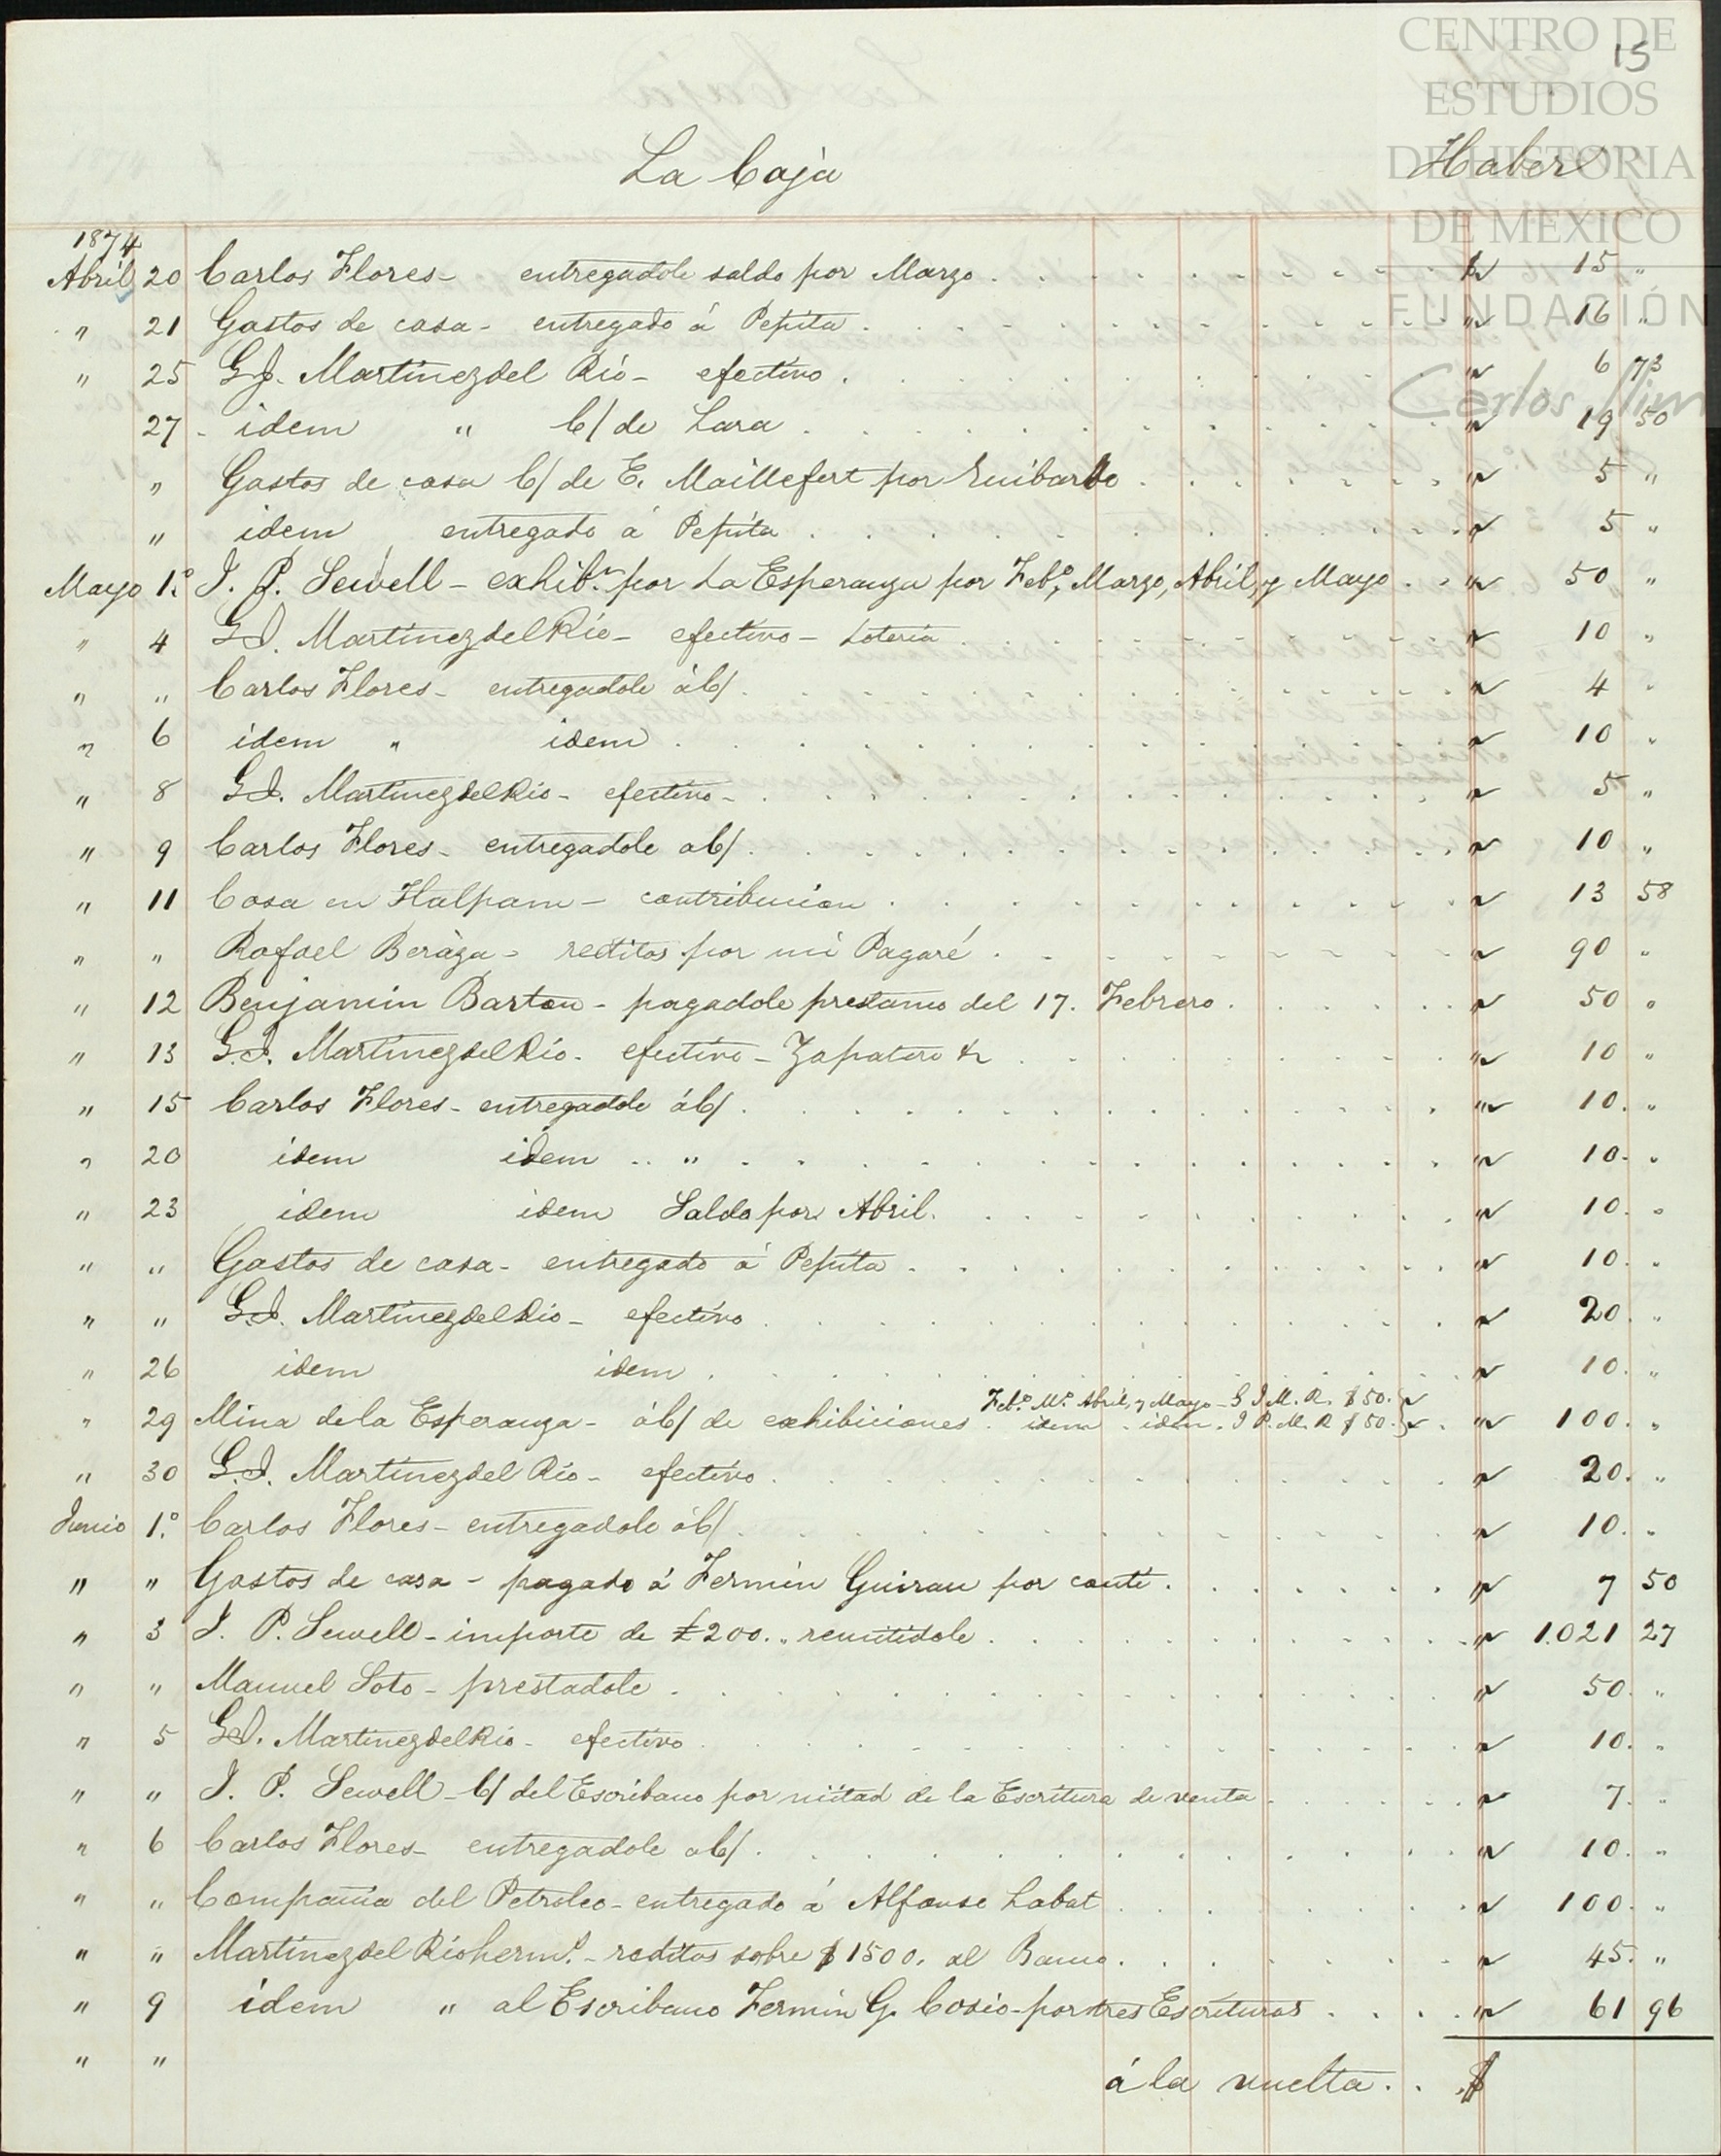 CENTRO DE
ESTUDIOS
DE HISTORIA
DE MEXICO
FUNDACIÓN
Carlos Slim
15
La Caja Haber
1874
Abril 20 Carlos Flores - entregadole saldo por Marzo . . . $ 15 "
" 21 Gastos de casa - entregado á Pepita . . . " 16 "
" 25 G.I. Martinez del Rio - efectivo . . . " 6 73
27 - idem " C/ de Lara . . . " 19 50
" Gastos de casa C/ de E. Maillefert por Ruibarbo . . . " 5 "
" idem entregado á Pepita . . . " 5 "
Mayo 1.º J. P. Sewell - exhib.n por La Esperanza por Feb.º, Marzo, Abril, y Mayo . . " 50 "
" 4 G.I. Martinez del Rio - efectivo - Loteria . . . " 10 "
" " Carlos Flores - entregadole áC/ . . . " 4 "
" 6 idem " idem . . . " 10 "
" 8 G.I. Martinez del Rio - efectivo - . . . " 5 "
" 9 Carlos Flores - entregadole aC/ . . . " 10 "
" 11 Casa en Tlalpam - contribucion . . . " 13 58
" " Rafael Beràza - reditos por mi Pagaré . . . " 90 "
" 12 Benjamin Barton - pagadole prestamo del 17. Febrero . . . " 50 "
" 13 G.I. Martinez del Rio - efectivo - Zapatero &c . . . " 10 "
" 15 Carlos Flores - entregadole áC/ . . . " 10. "
" 20 idem idem .. " . . . " 10. "
" 23 idem idem Saldo por Abril . . . " 10. "
" " Gastos de casa - entregado á Pepita . . . " 10. "
" " G.I. Martinez del Rio - efectivo . . . " 20. "
" 26 idem idem . . . " 10. "
Feb.º M.º Abril, y Mayo - G I M. R. $50. "
" 29 Mina de la Esperanza - áC/ de exhibiciones . idem . idem . J P. M. R $50. " . " 100. "
" 30 G.I. Martinez del Rio - efectivo . . . " 20. "
Junio 1.º Carlos Flores - entregadole áC/ . . . " 10. "
" " Gastos de casa - pagado á Fermin Guirau por conti . . . " 7 50
" 3 J. P. Sewell - importe de £200.. remitidole . . . " 1.021 27
" " Manuel Soto - prestadole . . . " 50. "
" 5 G.I. Martinez del Rio - efectivo . . . " 10. "
" " J. P. Sewell - C/ del Escribano por mitad de la Escritura de venta . . . " 7. "
" 6 Carlos Flores - entregadole aC/ . . . " 10. "
" " Compañia del Petroleo - entregado á Alfonse Labat . . . " 100. "
" " Martinez del Rio herm.s - reditos sobre $1500. al Banco . . . " 45. "
" 9 idem " al Escribano Fermin G. Cosio - por tres Escrituras . . . " 61 96
" "
á la vuelta . . $